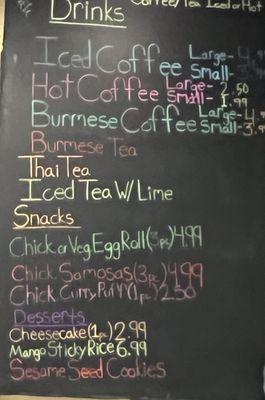 Drinks
Coffee/Tea Iced or Hot
Iced Coffee Large-
Small-
Hot Coffee Large- 2.50
small- 1.99
Burmese Coffee Large-
small-
Burmese Tea
Thai Tea
Iced Tea W/ Lime
Snacks
Chick or Veg Egg Roll (3pc) 4.99
Chick Samosas (3pc) 4.99
Chick Curry Puff (1pc) 2.50
Desserts
Cheesecake (1pc) 2.99
Mango Sticky Rice 6.99
Sesame Seed Cookies